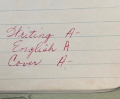 Writing A-
English A
Cover A-